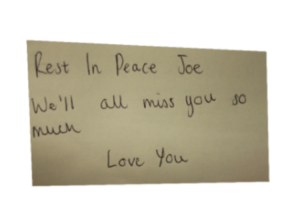 Rest In Peace Joe
We'll all miss you so
much
Love You